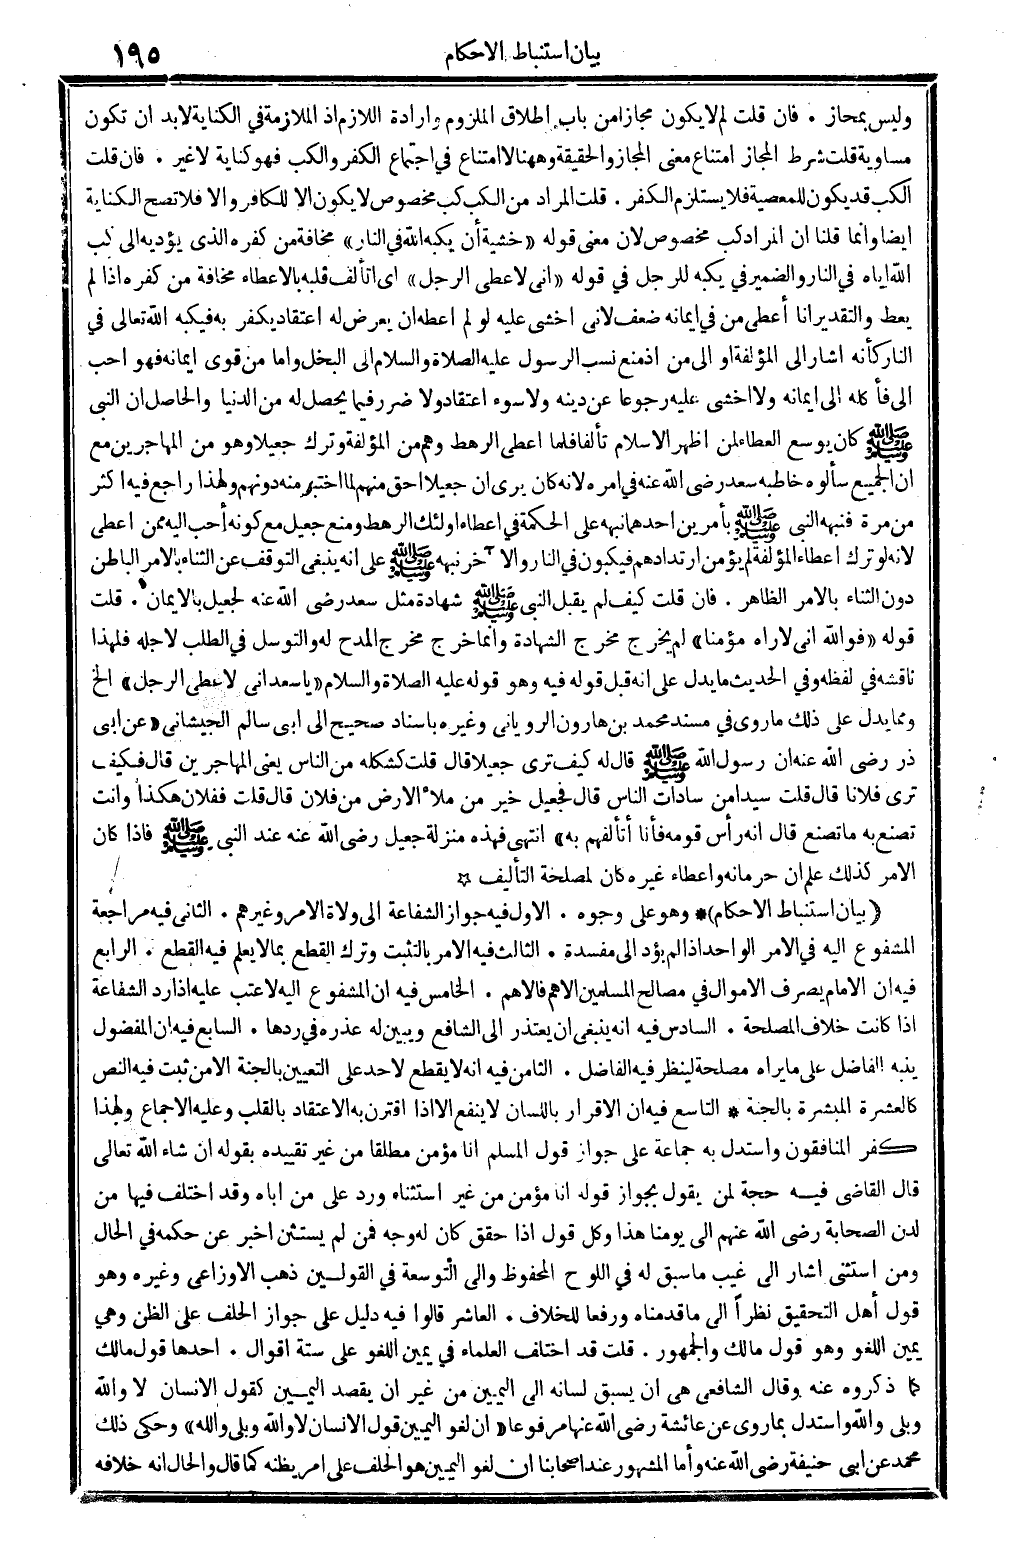 بيان استنباط الاحكام ١٩٥
وليس بمجاز . فان قلت لم لا يكون مجازا من باب اطلاق الملزوم وارادة اللازم اذ الملازمة في الكناية لابد ان تكون
مساوية قلت شرط المجاز امتناع معنى المجاز والحقيقة وههنا لا امتناع في اجتماع الكفر والكب فهو كناية لا غير . فان قلت
الكب قد يكون للمعصية فلا يستلزم الكفر . قلت المراد من الكب كب مخصوص لا يكون الا للكافر والا فلا تصح الكناية
ايضا وانما قلنا ان المراد كب مخصوص لان معنى قوله «خشية أن يكبه الله في النار» مخافة من كفره الذى يؤديه الى كب
الله اياه في النار والضمير في يكبه للرجل في قوله «انى لاعطى الرجل» اى اتألف قلبه بالاعطاء مخافة من كفره اذا لم
يعط والتقدير انا أعطى من في ايمانه ضعف لانى اخشى عليه لو لم اعطه ان يعرض له اعتقاد يكفر به فيكبه الله تعالى في
النار كأنه اشار الى المؤلفة او الى من اذ منع نسب الرسول عليه الصلاة والسلام الى البخل واما من قوى ايمانه فهو احب
الى فأكله الى ايمانه ولا اخشى عليه رجوعا عن دينه ولا سوء اعتقاد ولا ضرر فيما يحصل له من الدنيا والحاصل ان النبى
ﷺ كان يوسع العطاء لمن اظهر الاسلام تألفا فلما اعطى الرهط وهم من المؤلفة وترك جعيلا وهو من المهاجرين مع
ان الجميع سألوه خاطبه سعد رضى الله عنه في امره لانه كان يرى ان جعيلا احق منهم لما اختبر منه دونهم ولهذا راجع فيه اكثر
من مرة فنبهه النبى ﷺ بأمرين احدهما نبهه على الحكمة في اعطاء اولئك الرهط ومنع جعيل مع كونه أحب اليه ممن اعطى
لانه لو ترك اعطاء المؤلفة لم يؤمن ارتدادهم فيكبون في النار والآخر نبهه ﷺ على انه ينبغى التوقف عن الثناء بالامر الباطن
دون الثناء بالامر الظاهر . فان قلت كيف لم يقبل النبى ﷺ شهادة مثل سعد رضى الله عنه لجعيل بالايمان . قلت
قوله «فوالله انى لاراه مؤمنا» لم يخرج مخرج الشهادة وانما خرج مخرج المدح له والتوسل في الطلب لاجله فلهذا
ناقشه في لفظه وفي الحديث ما يدل على انه قبل قوله فيه وهو قوله عليه الصلاة والسلام «يا سعد انى لاعطى الرجل» الخ
ومما يدل على ذلك ما روى في مسند محمد بن هارون الرويانى وغيره باسناد صحيح الى ابى سالم الجيشانى «عن ابى
ذر رضى الله عنه ان رسول الله ﷺ قال له كيف ترى جعيلا قال قلت كشكله من الناس يعنى المهاجرين قال فكيف
ترى فلانا قال قلت سيدا من سادات الناس قال فجعيل خير من ملاء الارض من فلان قال قلت ففلان هكذا وانت
تصنع به ما تصنع قال انه رأس قومه فأنا أتألفهم به» انتهى فهذه منزلة جعيل رضى الله عنه عند النبى ﷺ فاذا كان
الامر كذلك علم ان حرمانه واعطاء غيره كان لمصلحة التأليف ☆
(بيان استنباط الاحكام)* وهو على وجوه . الاول فيه جواز الشفاعة الى ولاة الامر وغيرهم . الثانى فيه مراجعة
المشفوع اليه في الامر الواحد اذا لم يؤد الى مفسدة . الثالث فيه الامر بالتثبت وترك القطع بما لا يعلم فيه القطع . الرابع
فيه ان الامام يصرف الاموال في مصالح المسلمين الاهم فالاهم . الخامس فيه ان المشفوع اليه لا عتب عليه اذا رد الشفاعة
اذا كانت خلاف المصلحة . السادس فيه انه ينبغى ان يعتذر الى الشافع ويبين له عذره في ردها . السابع فيه ان المفضول
ينبه الفاضل على ما يراه مصلحة لينظر فيه الفاضل . الثامن فيه انه لا يقطع لاحد على التعيين بالجنة الا من ثبت فيه النص
كالعشرة المبشرة بالجنة * التاسع فيه ان الاقرار باللسان لا ينفع الا اذا اقترن به الاعتقاد بالقلب وعليه الاجماع ولهذا
كفر المنافقون واستدل به جماعة على جواز قول المسلم انا مؤمن مطلقا من غير تقييده بقوله ان شاء الله تعالى
قال القاضى فيه حجة لمن يقول بجواز قوله انا مؤمن من غير استثناء ورد على من اباه وقد اختلف فيها من
لدن الصحابة رضى الله عنهم الى يومنا هذا وكل قول اذا حقق كان له وجه فمن لم يستثن اخبر عن حكمه في الحال
ومن استثنى اشار الى غيب ما سبق له في اللوح المحفوظ والى التوسعة في القولين ذهب الاوزاعى وغيره وهو
قول أهل التحقيق نظراً الى ما قدمناه ورفعا للخلاف . العاشر قالوا فيه دليل على جواز الحلف على الظن وهي
يمين اللغو وهو قول مالك والجمهور . قلت قد اختلف العلماء في يمين اللغو على ستة اقوال . احدها قول مالك
كما ذكروه عنه وقال الشافعى هى ان يسبق لسانه الى اليمين من غير ان يقصد اليمين كقول الانسان لا والله
وبلى والله واستدل بما روى عن عائشة رضى الله عنها مرفوعا «ان لغو اليمين قول الانسان لا والله وبلى والله» وحكى ذلك
محمد عن ابى حنيفة رضى الله عنه وأما المشهور عند اصحابنا ان لغو اليمين هو الحلف على امر يظنه كما قال والحال انه خلافه